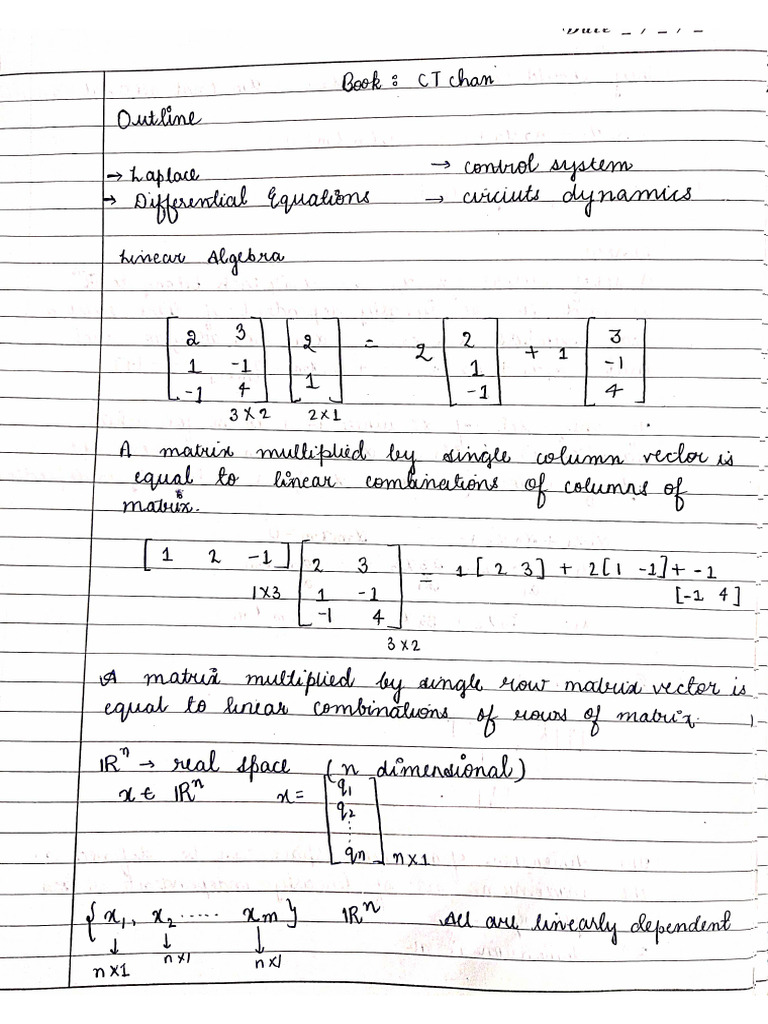 Date _ / _ / _
Book : CT chan
Outline
→ Laplace → control system
→ Differential Equations → circiuts dynamics
Linear Algebra
[2 3; 1 -1; -1 4] [2; 1] = 2 [2; 1; -1] + 1 [3; -1; 4]
3 X 2 2 x 1
A matrix multiplied by single column vector is
equal to linear combinations of columns of
matrix.
[1 2 -1] [2 3; 1 -1; -1 4] = 1 [2 3] + 2 [1 -1] + -1
1X3 [-1 4]
3 x 2
A matrix multiplied by single row matrix vector is
equal to linear combinations of rows of matrix.
ℝⁿ → real space (n dimensional)
x ∈ ℝⁿ x = [q₁; q₂; ⋮; qn] n x 1
{x₁, x₂ ..... xm} ℝⁿ All are linearly dependent
↓ ↓ ↓
n x 1 n x 1 n x 1